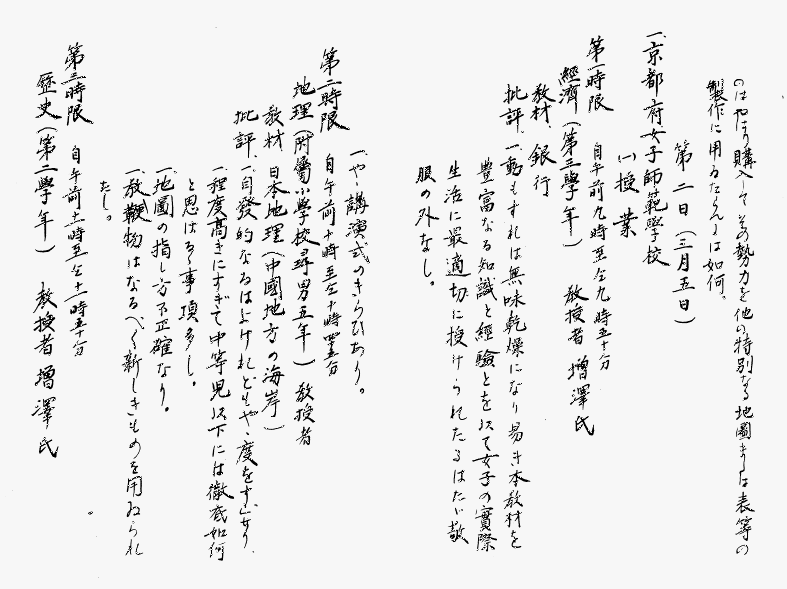 のはやはり購入してその勢力を他の特別なる地圖または表等の
製作に用るたらんには如何。
第二日(三月五日)
一、京都府女子師範學校
(一)授業
第一時限 自午前九時至仝九時五十分
經濟(第三學年) 教授者 增澤氏
教材、銀行
批評、一、動もすれは無味乾燥になり易き本教材を
豊富なる知識と經驗とを以て女子の實際
生活に最適切に授けられたるはたゞ敬
服の外なし。
一、やゝ講演式のきらひあり。
第二時限 自午前十時至仝十時四五分
地理(附屬小學校尋男五年) 教授者
教材、日本地理(中國地方の海岸)
批評、一、自發的なるはよけれどもやゝ度をすごせり、
一、程度高きにすぎて中等児以下には徹底如何
と思はるゝ事項多し。
一、地圖の指し方不正確なり。
一、放贈物はなるべく新しきものを用ゐられ
たし。
第三時限 自午前十一時至仝十一時五十分
歷史(第二學年) 教授者 增澤氏